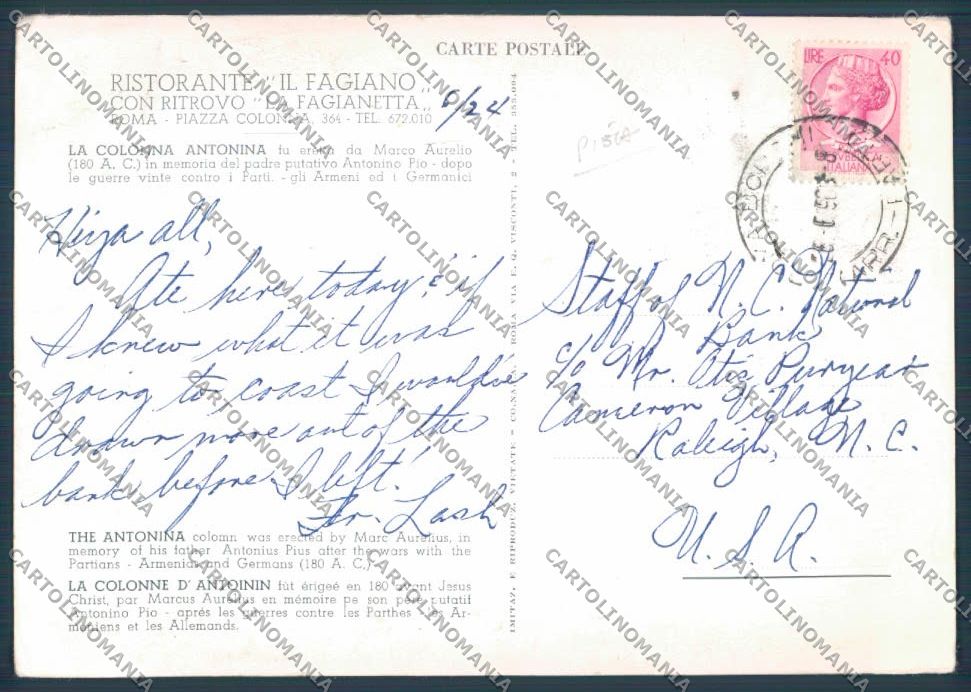 CARTE POSTALE
RISTORANTE "IL FAGIANO"
CON RITROVO "LA FAGIANETTA"
ROMA - PIAZZA COLONNA, 364 - TEL. 672.010
6/24
PISTA
LA COLONNA ANTONINA fu eretta da Marco Aurelio
(180 A. C.) in memoria del padre putativo Antonino Pio - dopo
le guerre vinte contro i Parti. - gli Armeni ed i Germanici
Hiya all,
Ate here today & if
I knew what it was
going to coast I would've
drawn more out of the
bank before I left.
Dr. Lash
THE ANTONINA colomn was erected by Marc Aurelius, in
memory of his father Antonius Pius after the wars with the
Partians - Armenians and Germans (180 A. C.)
LA COLONNE D' ANTOININ fût érigeé en 180 avant Jesus
Christ, par Marcus Aurelius en mémoire pe son père putatif
Antonino Pio - aprés les guerres contre les Parthes - les Ar-
méniens et les Allemands.
IMITAZ. E RIPRODUZ. VIETATE - ROMA VIA E. Q. VISCONTI, 2 - TEL.
LIRE 40
ITALIANA
Staff of N. C. National
Bank
c/o Mr. Otis Puryear
Cameron Village
Raleigh, N. C.
U. S. A.
CARTOLINOMANIA